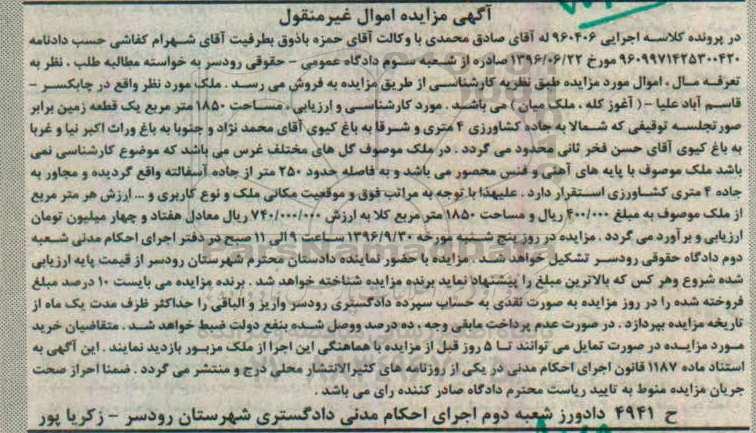 آگهی مزایده اموال غیرمنقول
در پرونده کلاسه اجرایی ۹۶۰۴۰۶ له آقای صادق محمدی با وکالت آقای حمزه باذوق بطرفیت آقای شهرام کفاشی حسب دادنامه
۹۶۰۹۹۷۱۴۲۵۳۰۰۴۲۰ مورخ ۱۳۹۶/۰۶/۲۲ صادره از شعبه سوم دادگاه عمومی - حقوقی رودسر به خواسته مطالبه طلب ، نظر به
تعرفه مال ، اموال مورد مزایده طبق نظریه کارشناسی از طریق مزایده به فروش می رسد . ملک مورد نظر واقع در چابکسر -
قاسم آباد علیا - ( آغوز کله ، ملک میان ) می باشد . مورد کارشناسی و ارزیابی ، مساحت ۱۸۵۰ متر مربع یک قطعه زمین برابر
صورتجلسه توقیفی که شمالا به جاده کشاورزی ۴ متری و شرقا به باغ کیوی آقای محمد نژاد و جنوبا به باغ وراث اکبر نیا و غربا
به باغ کیوی آقای حسن فخر ثانی محدود می گردد . در ملک موصوف گل های مختلف غرس می باشد که موضوع کارشناسی نمی
باشد ملک موصوف با پایه های آهنی و فنس محصور می باشد و به فاصله حدود ۲۵۰ متر از جاده آسفالته واقع گردیده و مجاور به
جاده ۴ متری کشاورزی استقرار دارد . علیهذا با توجه به مراتب فوق و موقعیت مکانی ملک و نوع کاربری و ... ارزش هر متر مربع
از ملک موصوف به مبلغ ۴۰۰/۰۰۰ ریال و مساحت ۱۸۵۰ متر مربع کلا به ارزش ۷۴۰/۰۰۰/۰۰۰ ریال معادل هفتاد و چهار میلیون تومان
ارزیابی و برآورد می گردد . مزایده در روز پنج شنبه مورخه ۱۳۹۶/۹/۳۰ ساعت ۹ الی ۱۱ صبح در دفتر اجرای احکام مدنی شعبه
دوم دادگاه حقوقی رودسر تشکیل خواهد شد . مزایده با حضور نماینده دادستان محترم شهرستان رودسر از قیمت پایه ارزیابی
شده شروع وهر کس که بالاترین مبلغ را پیشنهاد نماید برنده مزایده شناخته خواهد شد . برنده مزایده می بایست ۱۰ درصد مبلغ
فروخته شده را در روز مزایده به صورت نقدی به حساب سپرده دادگستری رودسر واریز و الباقی را حداکثر ظرف مدت یک ماه از
تاریخه مزایده بپردازد . در صورت عدم پرداخت مابقی وجه ، ده درصد ووصل شده بنفع دولت ضبط خواهد شد . متقاضیان خرید
مورد مزایده در صورت تمایل می توانند تا ۵ روز قبل از مزایده با هماهنگی این اجرا از ملک مزبور بازدید نمایند . این آگهی به
استناد ماده ۱۱۸۷ قانون اجرای احکام مدنی در یکی از روزنامه های کثیرالانتشار محلی درج و منتشر می گردد . ضمنا احراز صحت
جریان مزایده منوط به تایید ریاست محترم دادگاه صادر کننده رای می باشد .
ح ۴۹۴۱ دادورز شعبه دوم اجرای احکام مدنی دادگستری شهرستان رودسر - زکریا پور